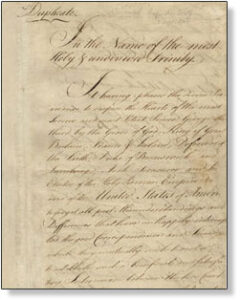 Duplicate.
In the Name of the most
Holy & undivided Trinity.
It having pleased the Divine Pro
vidence to dispose the Hearts of the most
Serene and most Potent Prince George the
third by the Grace of God, King of Great
Britain, France & Ireland, Defender of
the Faith, Duke of Brunswick and
Arch Treasurer and
Elector of the Holy Roman Empire
and of the United States of Amer
to forget all past Misunderstandings and
Differences that have unhappily
the good Correspondence and
which they mutually wish to
establish such a beneficial and
between the two